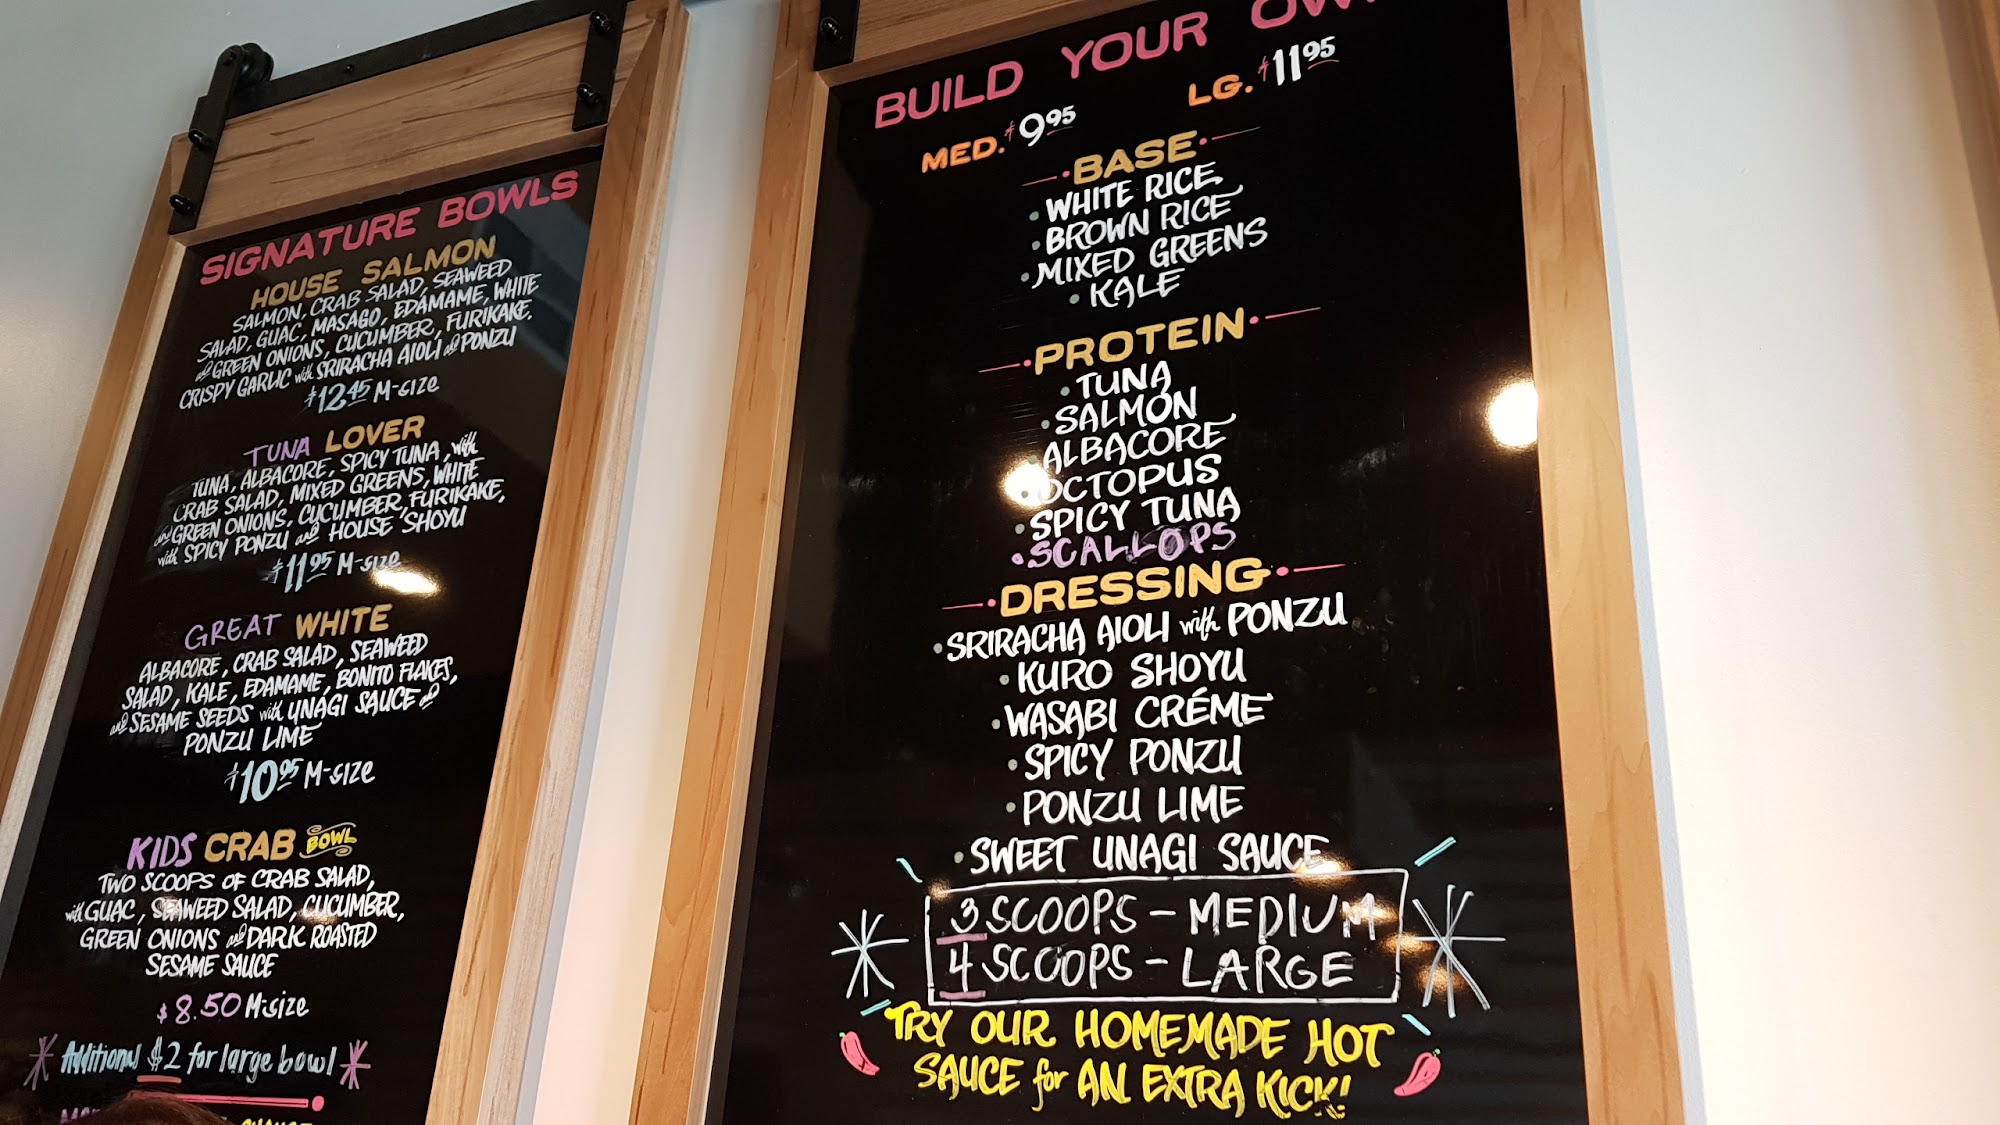 SIGNATURE BOWLS
HOUSE SALMON
SALMON, CRAB SALAD, SEAWEED
SALAD, GUAC, MASAGO, EDAMAME, WHITE
and GREEN ONIONS, CUCUMBER, FURIKAKE,
CRISPY GARLIC with SRIRACHA AIOLI and PONZU
$12.45 M-size
TUNA LOVER
TUNA, ALBACORE, SPICY TUNA, with
CRAB SALAD, MIXED GREENS, WHITE
and GREEN ONIONS, CUCUMBER, FURIKAKE,
with SPICY PONZU and HOUSE SHOYU
$11.95 M-size
GREAT WHITE
ALBACORE, CRAB SALAD, SEAWEED
SALAD, KALE, EDAMAME, BONITO FLAKES,
and SESAME SEEDS with UNAGI SAUCE and
PONZU LIME
$10.95 M-size
KIDS CRAB BOWL
TWO SCOOPS OF CRAB SALAD,
with GUAC, SEAWEED SALAD, CUCUMBER,
GREEN ONIONS and DARK ROASTED
SESAME SAUCE
$8.50 M-size
Additional $2 for large bowl
BUILD YOUR OWN
MED. $9.95 LG. $11.95
BASE
• WHITE RICE
• BROWN RICE
• MIXED GREENS
• KALE
PROTEIN
• TUNA
• SALMON
• ALBACORE
• OCTOPUS
• SPICY TUNA
• SCALLOPS
DRESSING
• SRIRACHA AIOLI with PONZU
• KURO SHOYU
• WASABI CRÉME
• SPICY PONZU
• PONZU LIME
• SWEET UNAGI SAUCE
3 SCOOPS - MEDIUM
4 SCOOPS - LARGE
TRY OUR HOMEMADE HOT
SAUCE for AN EXTRA KICK!